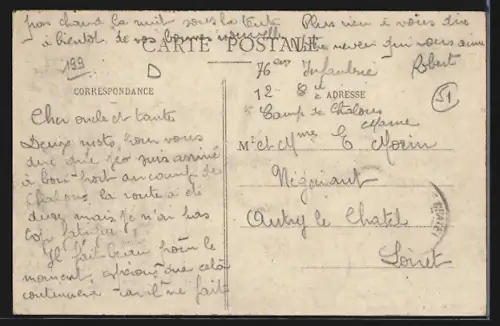 pas chaud la nuit sous la tente
à bientôt de vos bonnes nouvelles
Plus rien à vous dire
Votre neveu qui vous aime
Robert
CARTE POSTALE
199
D
CORRESPONDANCE
76ème Infanterie
12 - 8
ADRESSE
51
Camp de Chalons
Marne
Cher oncle et tante
Deux mots pour vous
dire que je suis arrivé
à bon port au camp de
Chalons, la route a été
dure mais je n'ai pas
trop fatigué
Il fait beau pour le
moment, espérons que cela
continuera car il ne fait
M. et Mme E Morin
Négociant
Autry le Chatel
Loiret